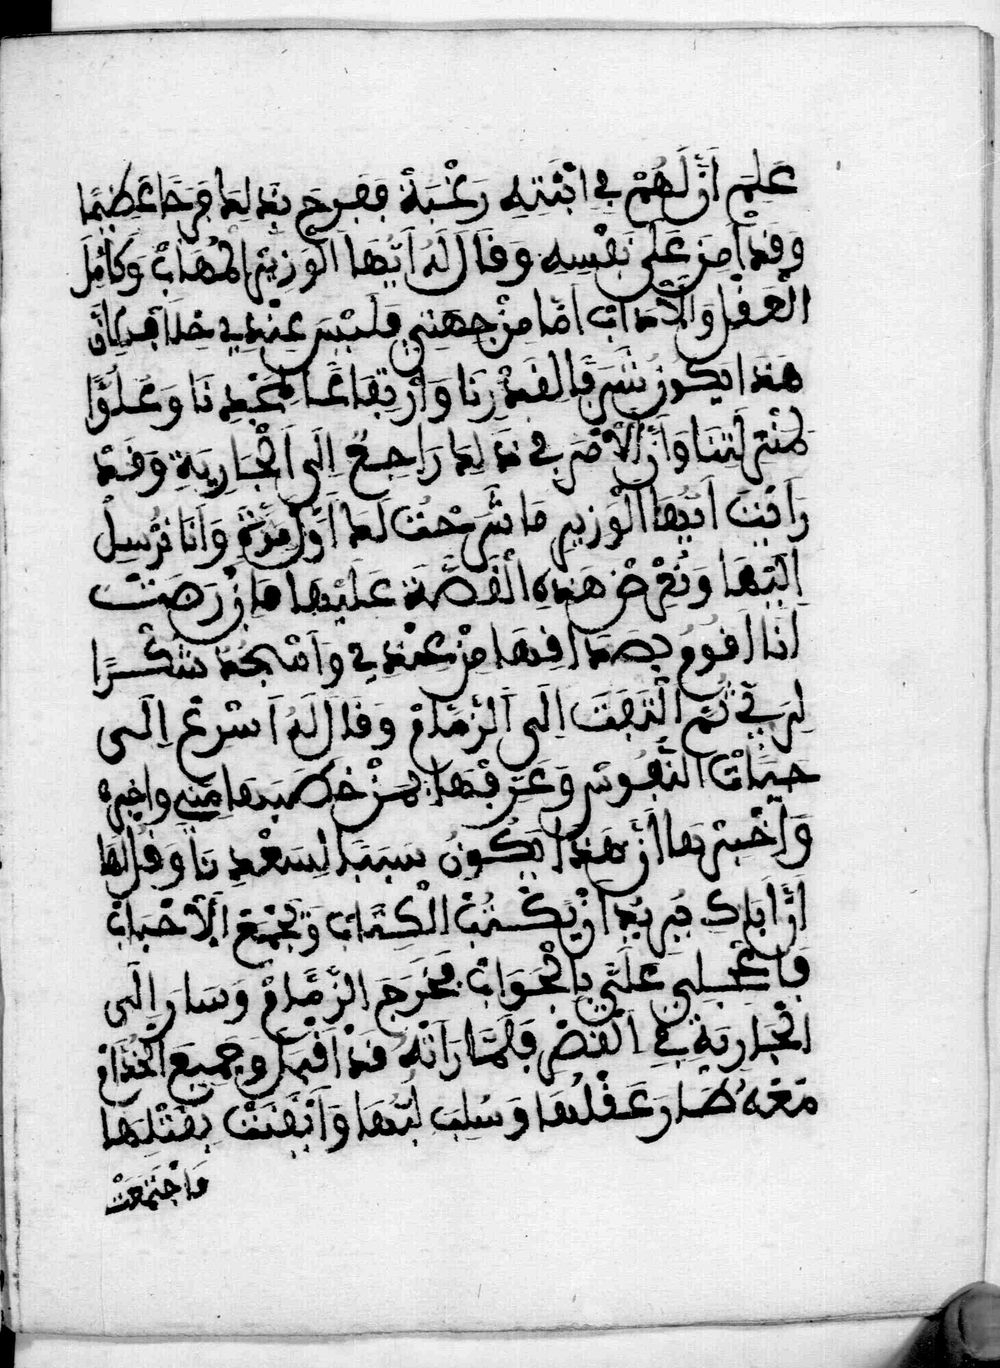 عَلِمَ اَنَّ لَهُمْ في ابْنَتِهِ رَغْبَةً ففرح بذلك فَرَحًا عَظِيمًا
وَقد اَمِنَ عَلَى نَفْسِهِ وَقَالَ لَهُ اَيُّهَا الْوَزِيرُ المُهَابْ وَكَامِلَ
الْعَقْلِ وَالْاَدَابْ امّا مِنْ جِهَتِي فَلَيْسَ عِنْدِي خلاف لِاَنَّ
هَذا يكون شَرَفًا لقدْرِنَا وَارْتِفَاعًا لمجْدِنَا وَعُلُوًّا
لمنْزِلَتِنَا وَاَنَّ الاَمْرَ في ذَلِكَ رَاجِعٌ اِلَى الْجَارِيَةِ وَقَدْ
رَاَيْتَ اَيُّهَا الْوَزِيرُ مَا شَرَحْتُ لَكَ اَوَّلَ مَرَّةٍ وَاَنَا نُرْسِلُ
اِلَيْهَا وَنُعْرِضْ هَذِهِ الْقَصَّةَ عَلَيْهَا فَاِنْ رَضَتْ
اَنَا اَقُومُ بِصَدَاقِهَا مِنْ عِنْدِي وَاَسْجُدُ شُكْرًا
لِرَبِّي ثُمَّ الْتَفَتَ اِلَى الزّمَامْ وَقَالَ لَهُ اَسْرِعْ اِلَى
حيَاةْ النُّفُوسْ وَعَرِّفْهَا بمَنْ خَطَبَهَا مِنِي
وَاَخْبِرْهَا اَنَّ هَذَا يَكُونُ سَبَبًا لِسَعْدِنَا وَقُلْ لَهَا
اَنَّ اَبَاكِ يُرِيدُ اَنْ يَكْتُبَ الْكِتَابْ وَيَجْمَعَ الاَحْبَابْ
فَاعْجَلِي عَلَيَّ بِالْجَوَابْ فَخَرَجَ الزِّمَامْ وَسَارَ اِلَى
الْجَارِيَةِ في الْقَصْرِ فَلَمَّا رَاَتْهُ قدْ اَقْبَلَ وَجَمِيعَ الْخُدَّامْ
مَعَهُ طَارَ عَقْلُهَا وَسُلِبَ لُبُّهَا وَاَيْقَنَتْ بِقَتْلِهَا
وَاجْتَمَعَتْ